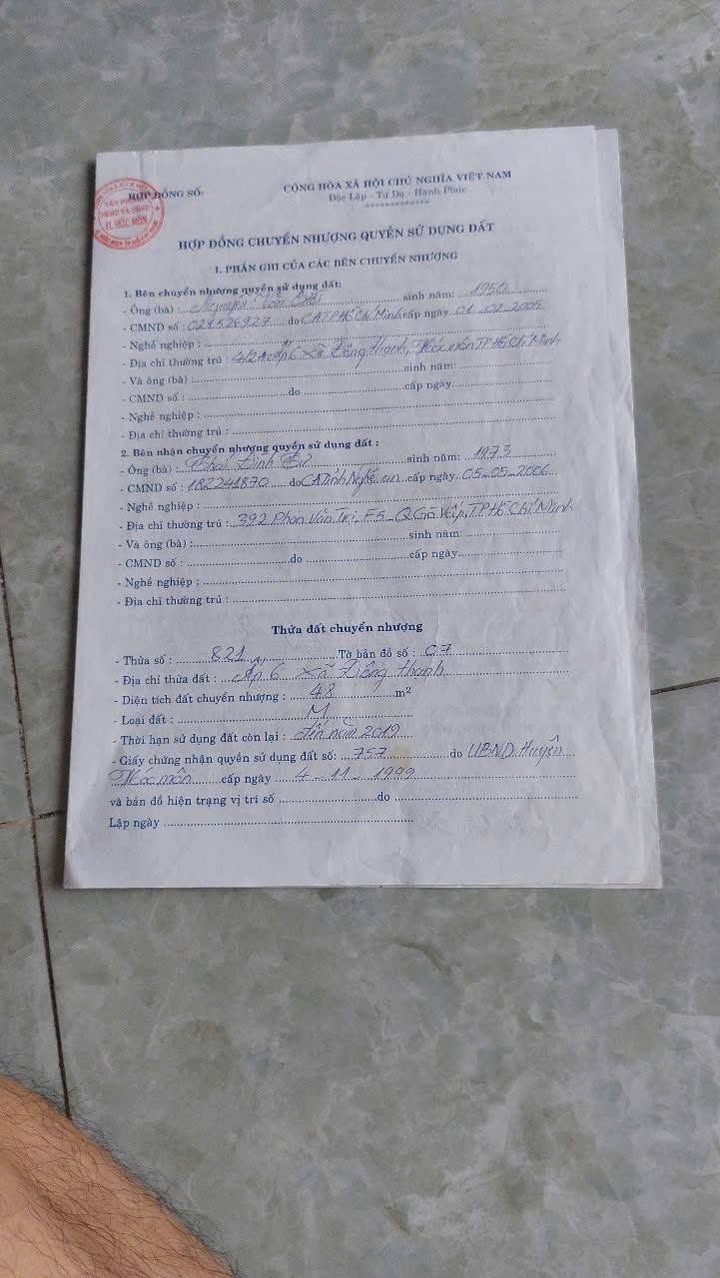 CỘNG HÒA XÃ HỘI CHỦ NGHĨA VIỆT NAM
HỢP ĐỒNG SỐ:
Độc Lập - Tự Do - Hạnh Phúc
H. HÓC MÔN
HỢP ĐỒNG CHUYỂN NHƯỢNG QUYỀN SỬ DỤNG ĐẤT
I. PHẦN GHI CỦA CÁC BÊN CHUYỂN NHƯỢNG
1. Bên chuyển nhượng quyền sử dụng đất:
- Ông (bà) : Nguyễn Văn sinh năm: 1950
- CMND số : 021526927 do CATPHồ Chí Minh cấp ngày 01-02-2005
- Nghề nghiệp :
- Địa chỉ thường trú : Xã Đông thạnh, Hóc môn TP Hồ Chí Minh
- Và ông (bà) : sinh năm:
- CMND số : do cấp ngày
- Nghề nghiệp :
- Địa chỉ thường trú :
2. Bên nhận chuyển nhượng quyền sử dụng đất :
- Ông (bà) : Đình sinh năm: 1973
- CMND số : 182241870 do CATỉnh Nghệ an cấp ngày 05-05-2006
- Nghề nghiệp :
- Địa chỉ thường trú : 392 Phan Văn Trị, F5 - Q Gò Vấp, TP Hồ Chí Minh
- Và ông (bà) : sinh năm:
- CMND số : do cấp ngày
- Nghề nghiệp :
- Địa chỉ thường trú :
Thửa đất chuyển nhượng
- Thửa số : 821 Tờ bản đồ số : 07
- Địa chỉ thửa đất : Ấp 6 Xã Đông thạnh
- Diện tích đất chuyển nhượng : 48 m²
- Loại đất : M
- Thời hạn sử dụng đất còn lại : đến năm 2019
- Giấy chứng nhận quyền sử dụng đất số: 757 do UBND Huyện
Hóc môn cấp ngày 4-11-1999
và bản đồ hiện trạng vị trí số do
Lập ngày